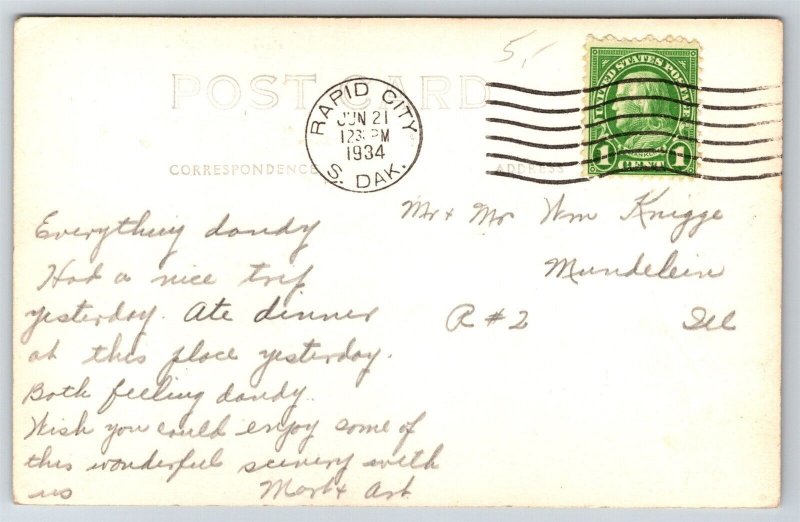 5,-
POST CARD
RAPID CITY
JUN 21
12 PM
1934
S. DAK.
UNITED STATES POSTAGE
FRANKLIN
1 CENT 1
CORRESPONDENCE
ADDRESS
Mr + Mr Wm Knigge
Mundelein
R # 2 Ill
Everything dandy
Had a nice trip
yesterday. Ate dinner
at this place yesterday.
Both feeling dandy.
Wish you could enjoy some of
this wonderful scenery with
us Mart + Art